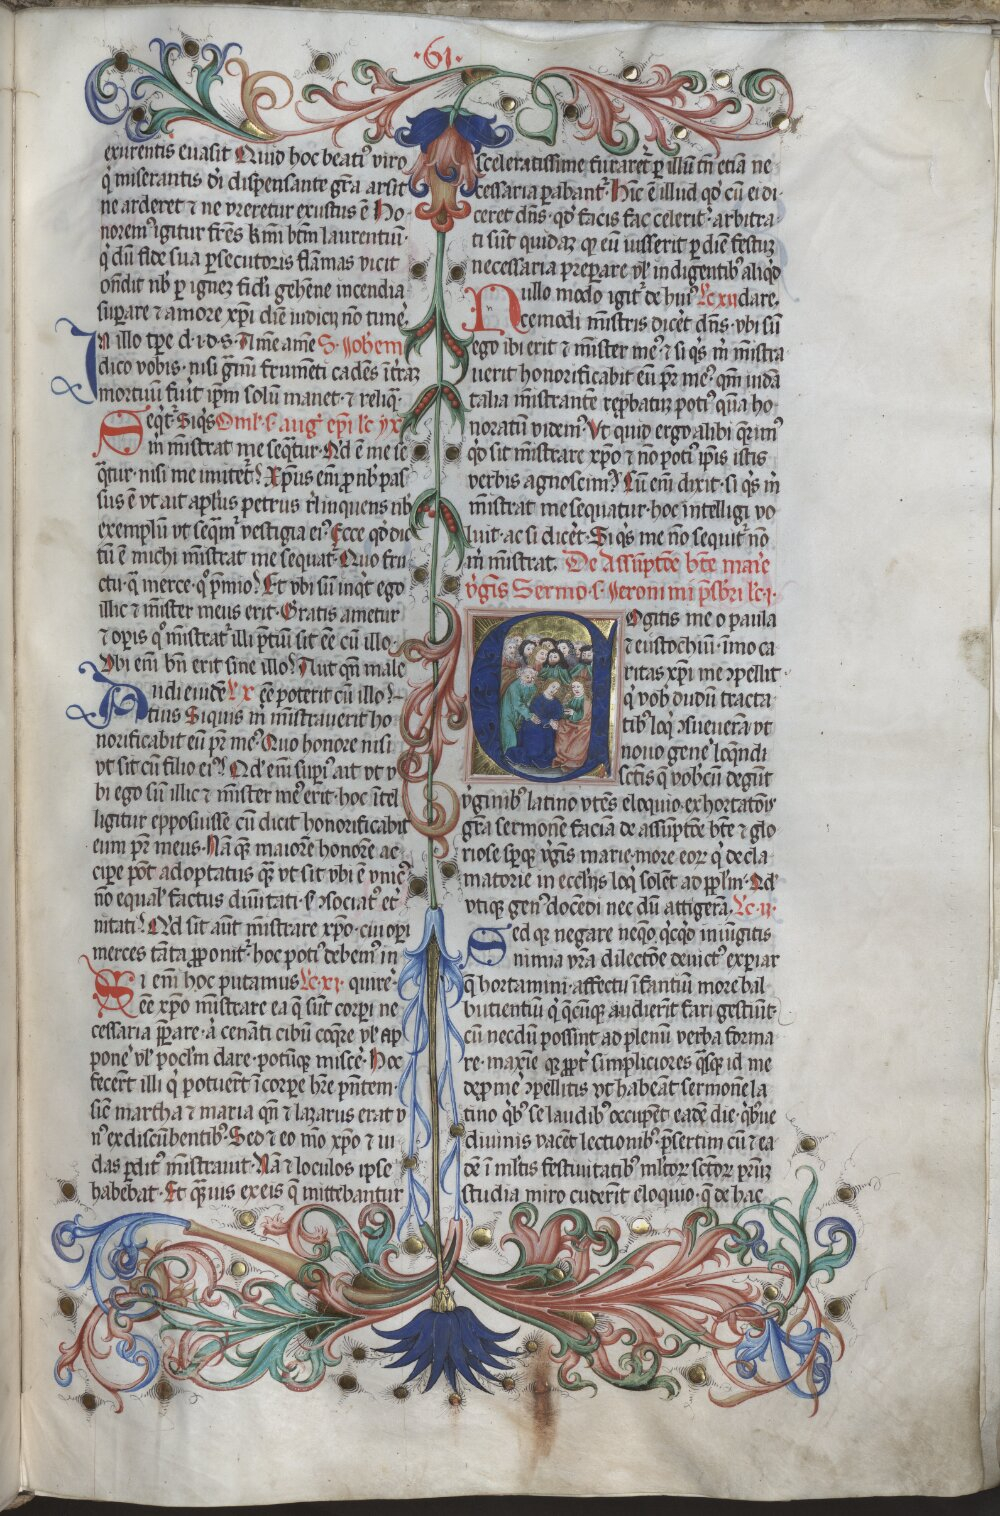 ·61·
exurentis euasit Quid hoc beatiꝰ viro
q̓ miserantis dī dispensante gr̄a arsit
ne arderet ⁊ ne vreretur exustus ē Ho
norem igitur fr̄es km̄i btm̄ laurentiū·
q̓ dū fide sua ꝑsecutoris flāmas vicit
oñdit nb̓ ꝑ ignez fidei gehēne incendia
supare ⁊ amore xp̄i diē iudicij nō timē.
In illo tp̄e d·i·d·s· Amē amē S· Johēm
dico vobis· nisi gnm̄ frumēti cadēs ī t̓raz
mortuū fu̓it ip̄m solum manet· ⁊ reliq̄·
Seqt̓ Siq̓s Oml̓·s· aug̓ ep̄i lc̄ ix
m̓ mīstrat me seqtur· Qd̓ ē me se
q̄tur· nisi me imitet̓? Xp̄us em̄ ꝓ nb̓ pas
sus ē vt ait apl̓us petrus r̓linquens nb̓
exemplū vt seqm̄ vestigia eiꝰ Ecce qd̓ dic
tū ē michi mīstrat me sequat̓· Quo fru
ctu· q̄ merce· q̊ p̄mio? Et vbi sū inq̓t ego
illic ⁊ mīster meus erit· Gratis ametur
⁊ opis q̊ mīstrat̓ illi p̄tiū sit ēē cū illo·
Vbi em̄ bn̄ erit sine illo? Aut qn̄ male
Audi euidē lc̄ x ēē poterit cū illo?
tius Siquis m̓ mīstrauerit ho
norificabit eū pr̄ meꝰ· Quo honore nisi
vt sit cū filio eiꝰ? Qd̓ em̄ supiꝰ ait vt v
bi ego sū illic ⁊ mīster meꝰ erit· hoc ītel
ligitur epposuisse cū dicit honorificabit
eum pr̄ meus· Nā q̄ꝫ maiorē honorē ac
cipe pōt adoptatus q̄ꝫ vt sit vbi ē vnicꝰ
nō equal̓ factus diuītati· s̓ ꝯsociatꝰ et̓
nitati? Qd̓ sit aūt mīstrare xp̄o· cui op̓i
merces tāta ꝓponit̓· hoc potiꝰ debemꝰ in
Si em̄ hoc putamus lc̄·xi· quire·
ēē xp̄o mīstrare ea q̄ sūt corp̓i ne
cessaria p̄pare· a̓ cenāti cibū coq̄re vl̓ ap
pone̓ vl̓ poclm̄ dare· potūq̓ misce̓· Hoc
fecer̄t illi q̓ potuer̄t ī corpe hr̄e pn̄tem·
sic̄ martha ⁊ maria qn̄ ⁊ lazarus erat v
nꝰ ex discūbentibꝰ· Sed ⁊ eo mō xp̄o ⁊ iu
das p̄ditꝰ mīstrauit· Nā ⁊ loculos ipse
habebat· Et q̄ꝫuis ex eis q̄ mittebantur
sceleratissime furaret̓ ꝑ illū tn̄ etiā ne
cessaria ꝑabant̓· Hīc ē illud qd̓ cū ei di
ceret dn̄s· qd̓ facis fac celeriꝰ· arbitra
ti sūt quidaz q̓ eū iusserit ꝓ diē festuz
necessaria prepare vl̓ indigentibꝰ aliqd̓
Nullo modo igit̓ de huiꝰ lc̄ xij dare·
cemodi mīstris dice̓t dn̄s· vbi sū
ego ibi erit ⁊ mīster meꝰ· ⁊ si q̓s m̓ mīstra
uerit honorificabit eū pr̄ meꝰ· qm̄ iudā
talia mīstrantē repbatuz potiꝰ quā ho
noratū videmꝰ· Vt quid ergo alibi q̄rimꝰ
qd̓ sit mīstrare xp̄o ⁊ nō potiꝰ ip̄is istis
verbis agnoscimꝰ? Cū em̄ dixit· si q̓s m̓
mīstrat me sequatur· hoc intelligi vo
luit· ac si dice̓t· Si q̓s me nō sequit̓ nō
m̓ mīstrat. De Assūptōe bt̄e marie
v̓gīs Sermo· s· Jeronimi p̄sb̓ri lc̄·i·
Cogitis me o paula
⁊ eustochiū· imo ca
ritas xp̄i me ꝯpellit
q̓ vob̓ dudū tracta
tibꝰ loq̓ ꝯsueuerā· vt
nouo gene̓ loqndi
sct̄is q̓ vobcū degūt
v̓ginibꝰ latino vtēs eloquio exhortatōis
gr̄a sermonē faciā de assūptōe bt̄e ⁊ glo
riose spq̓ v̓gīs marie· more eoꝝ q̓ decla
matorie in ecclijs loq̓ solēt ad pplm̄· Qd̓
vtiq̓ genꝰ docēdi nec dū attigerā. lc̄·ij·
Sed qꝫ negare neq̓o q̓cq̓d iniūgitis
nimia vr̄a dilectōe deuictꝰ expiar
q̄ hortamini· affectu īfantiū more bal
butientiū q̓ q̄cūqꝫ audierīt fari gestiūt·
cū necdū possint ad plenū verba forma
re· maxīe qꝫ ꝓpt̓ simpliciores q̄sq̓ id me
depme̓ ꝯpellitis vt habeāt sermonē la
tino q̓bꝰ se laudibꝰ occupēt eadē die· q̓bue
diuinis vacēt lectionibꝰ· p̄sertim cū ⁊ ea
dē ī ml̓tis festiuitatibꝰ ml̓toꝝ sctoꝝ pr̄uz
studia miro ediderīt eloquio· q̄ de hac